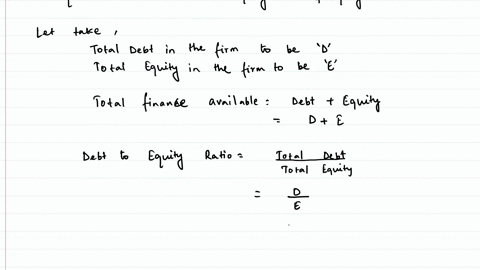 Let take,
Total Debt in the firm to be 'D'
Total Equity in the firm to be 'E'
Total finance available: Debt + Equity
= D + E
Debt to Equity Ratio = Total Debt
Total Equity
= D
E